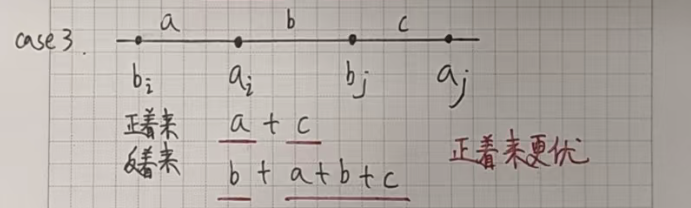 case 3.
a b c
b_i a_i b_j a_j
正着来 a + c
反着来 b + a + b + c
正着来更优